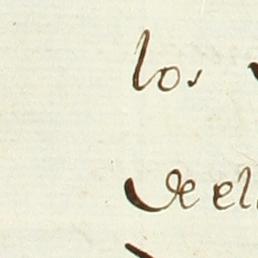 los
de el